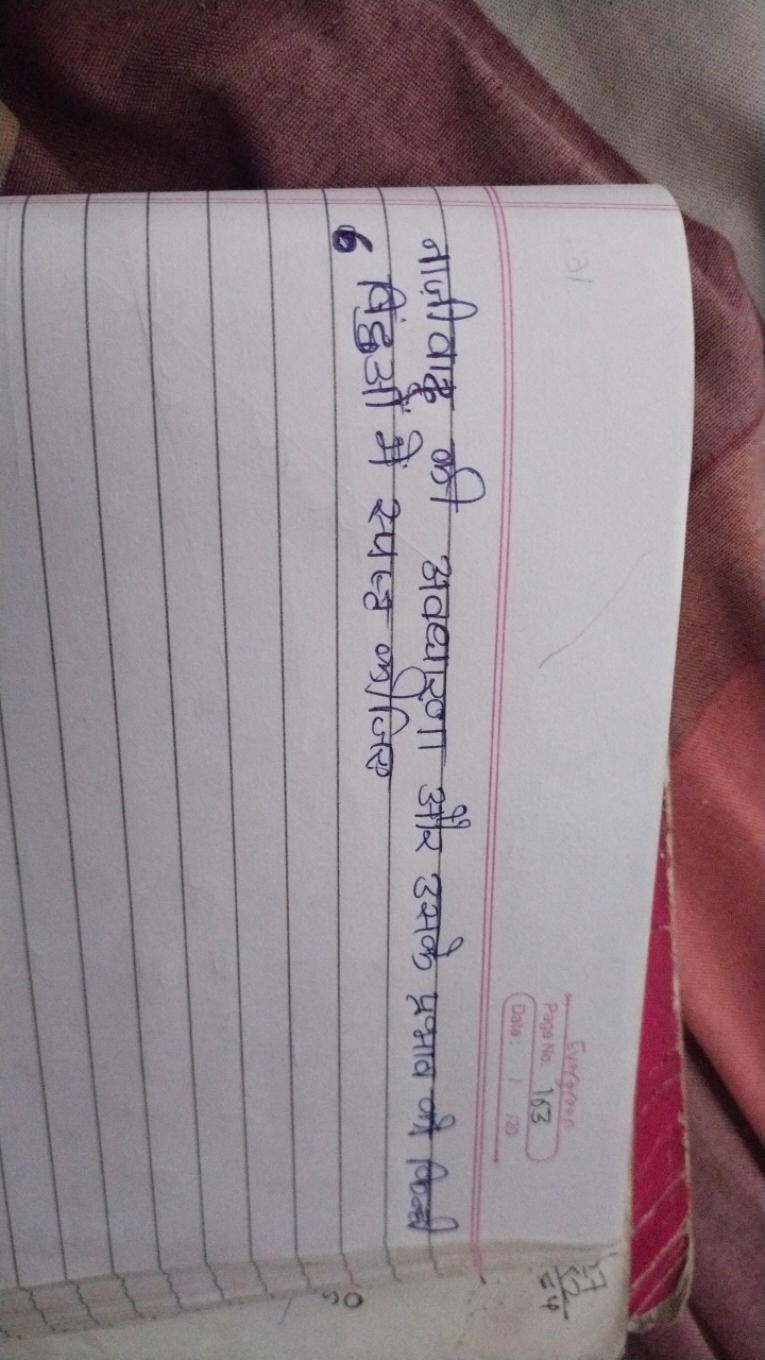 Evergreen
Page No. 163
Date: / /20
नाज़ीवाद की अवधारणा और उसके प्रभाव को किन्ही
6 बिंदुओं में स्पष्ट कीजिए